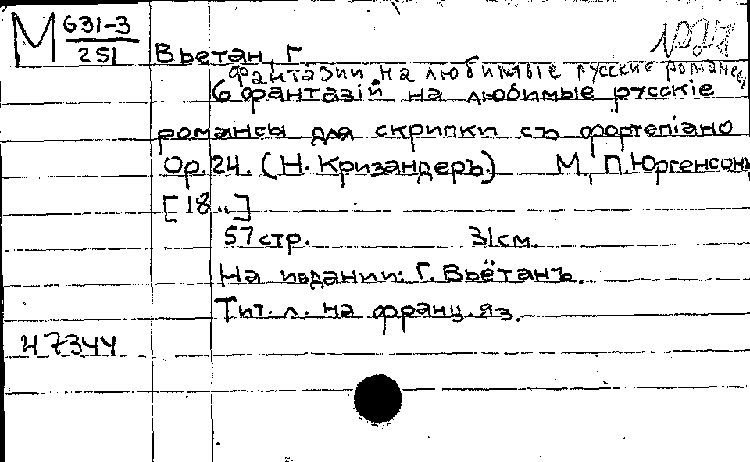 М 631-3
251
№27
Вьетан, Г
Фантазии на любимые русские романсы
6 фантазій на любимые русскіе
романсы для скрипки съ фортепіано
Op. 24. (Н. Кризандеръ.) М, П. Юргенсонъ,
[18..]
57 стр. 31 см.
На издании: Г. Вьётанъ.
Тит. л. на франц. яз.
47344